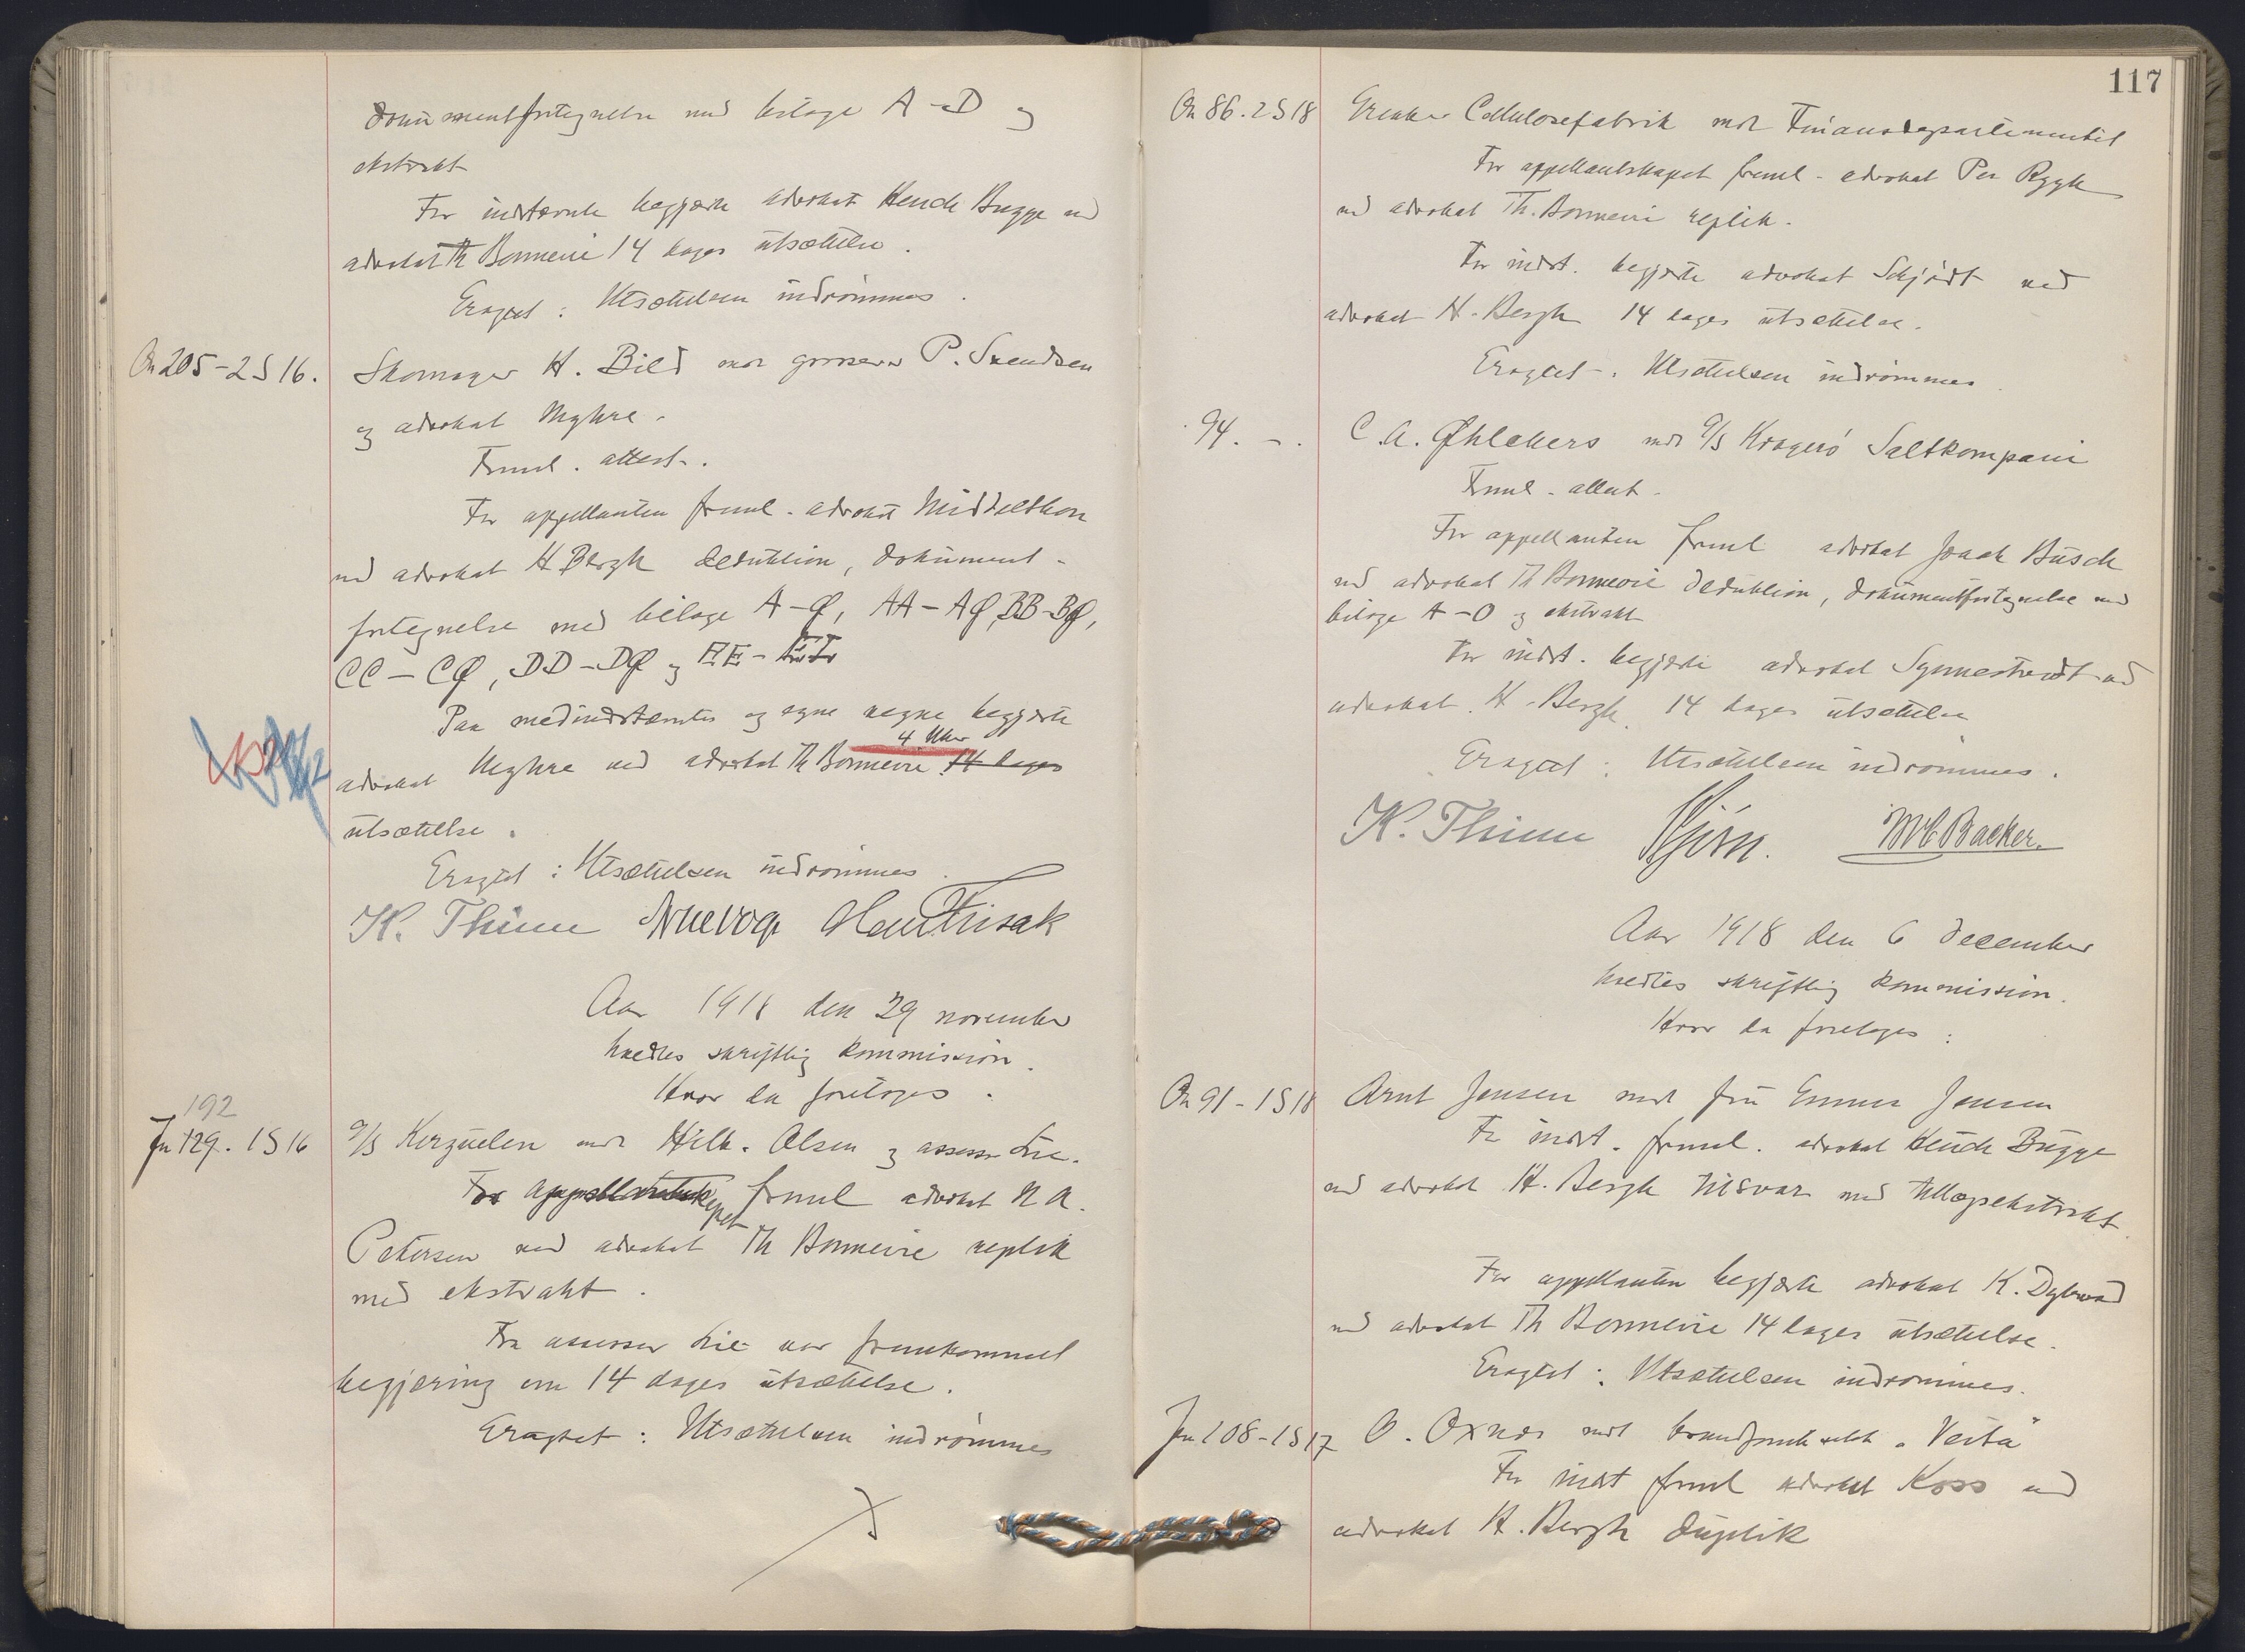 dokumentfortegnelse med bilage A-D og
ekstrakt
For indstævnte begjærte advokat Heude Bugge ved
advokat Th Bonnevie 14 dages utsættelse.
Eragtet: Utsættelsen indrømmes.
On 205-2S16. Skomager H. Bild mot grosserer P. Svendsen
og advokat Myhre.
Freml. attest.
For appellanten freml. advokat Middelthon
ved advokat H Bergh deduktion, dokument-
fortegnelse med bilage A-Ø, AA-AØ, BB-BØ,
CC-CØ, DD-DØ og EE-
Paa medindstævntes og egne vegne begjærte
4 Uker
advokat Myhre ved advokat Th Bonnevie 14 dages
utsættelse.
Eragtet: Utsættelsen indrømmes.
K. Thinn
Aar 1918 den 29 november
holdtes skriftlig kommission.
Hvor da foretoges:
192
Jn 129. 1S16 A/S Kerguelen mot Hilb. Olsen og assessor Lie.
For appellantskapet freml advokat N A.
Petersen ved advokat Th Bonnevie replik
med ekstrakt.
Fra assessor Lie var fremkommet
begjæring om 14 dages utsættelse.
Eragtet: Utsættelsen indrømmes
117
On 86. 2S18 Greaker Cellulosefabrik mot Finansdepartementet
For appellantskapet freml. advokat Per Rygh
ved advokat Th. Bonnevie replik.
For indst. begjærte advokat Schjødt ved
advokat H. Bergh 14 dages utsættelse.
Eragtet: Utsættelsen indrømmes.
94. -. C. A. Øhlckers mot A/S Kragerø Saltkompani
Freml. attest.
For appellanten freml advokat Isaak Busch
ved advokat Th Bonnevie deduktion, dokumentfortegnelse med
bilage A-O og ekstrakt
For indst. begjærte advokat Synnestvedt ved
advokat H. Bergh 14 dages utsættelse
Eragtet: Utsættelsen indrømmes.
K. Thinn Bjørn. Backer.
Aar 1918 den 6 december
holdtes skriftlig kommission.
Hvor da foretoges:
On 91-1S18 Arnt Jensen mot fru Emma Jensen
For indst. freml. advokat Heude Bugge
ved advokat H. Bergh tilsvar med tillægsekstrakt.
For appellanten begjærte advokat K. Dybwad
ved advokat Th Bonnevie 14 dages utsættelse.
Eragtet: Utsættelsen indrømmes.
Jn 108-1S17 O. Oxnæs mot brandforsik selsk „Vesta"
For indst freml advokat Koss ved
advokat H. Bergh duplik